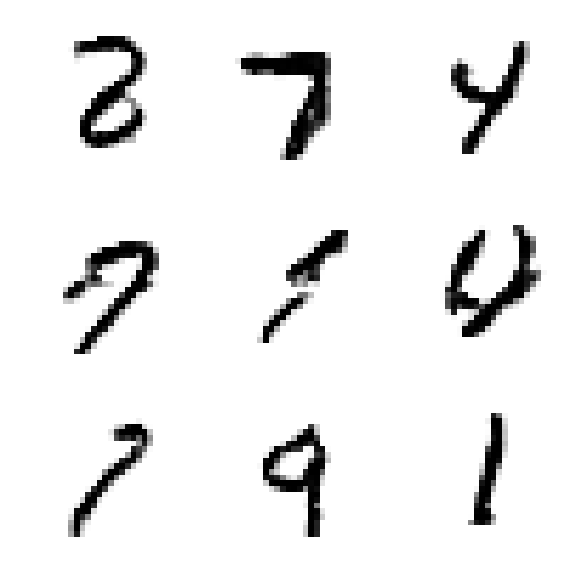 8 7 4
7 1 4
7 9 1